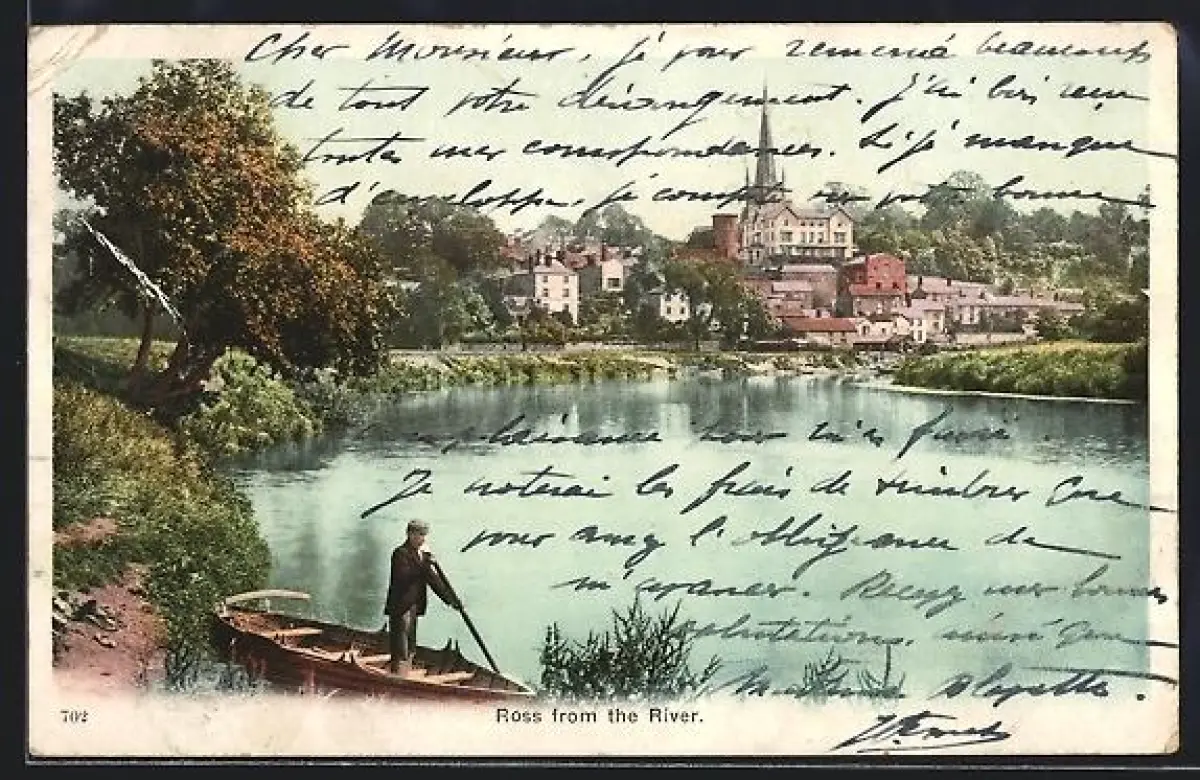 Cher Monsieur, je vous remercie beaucoup
de tout votre dérangement. J'ai bien reçu
toutes mes correspondances. Si je manque
d'enveloppe, je compte sur votre bonne
complaisance pour bien
Je noterai les frais de timbres que
vous avez l'obligeance de
m'avancer. Recevez mes bonnes
salutations, ainsi que
Madame
702
Ross from the River.